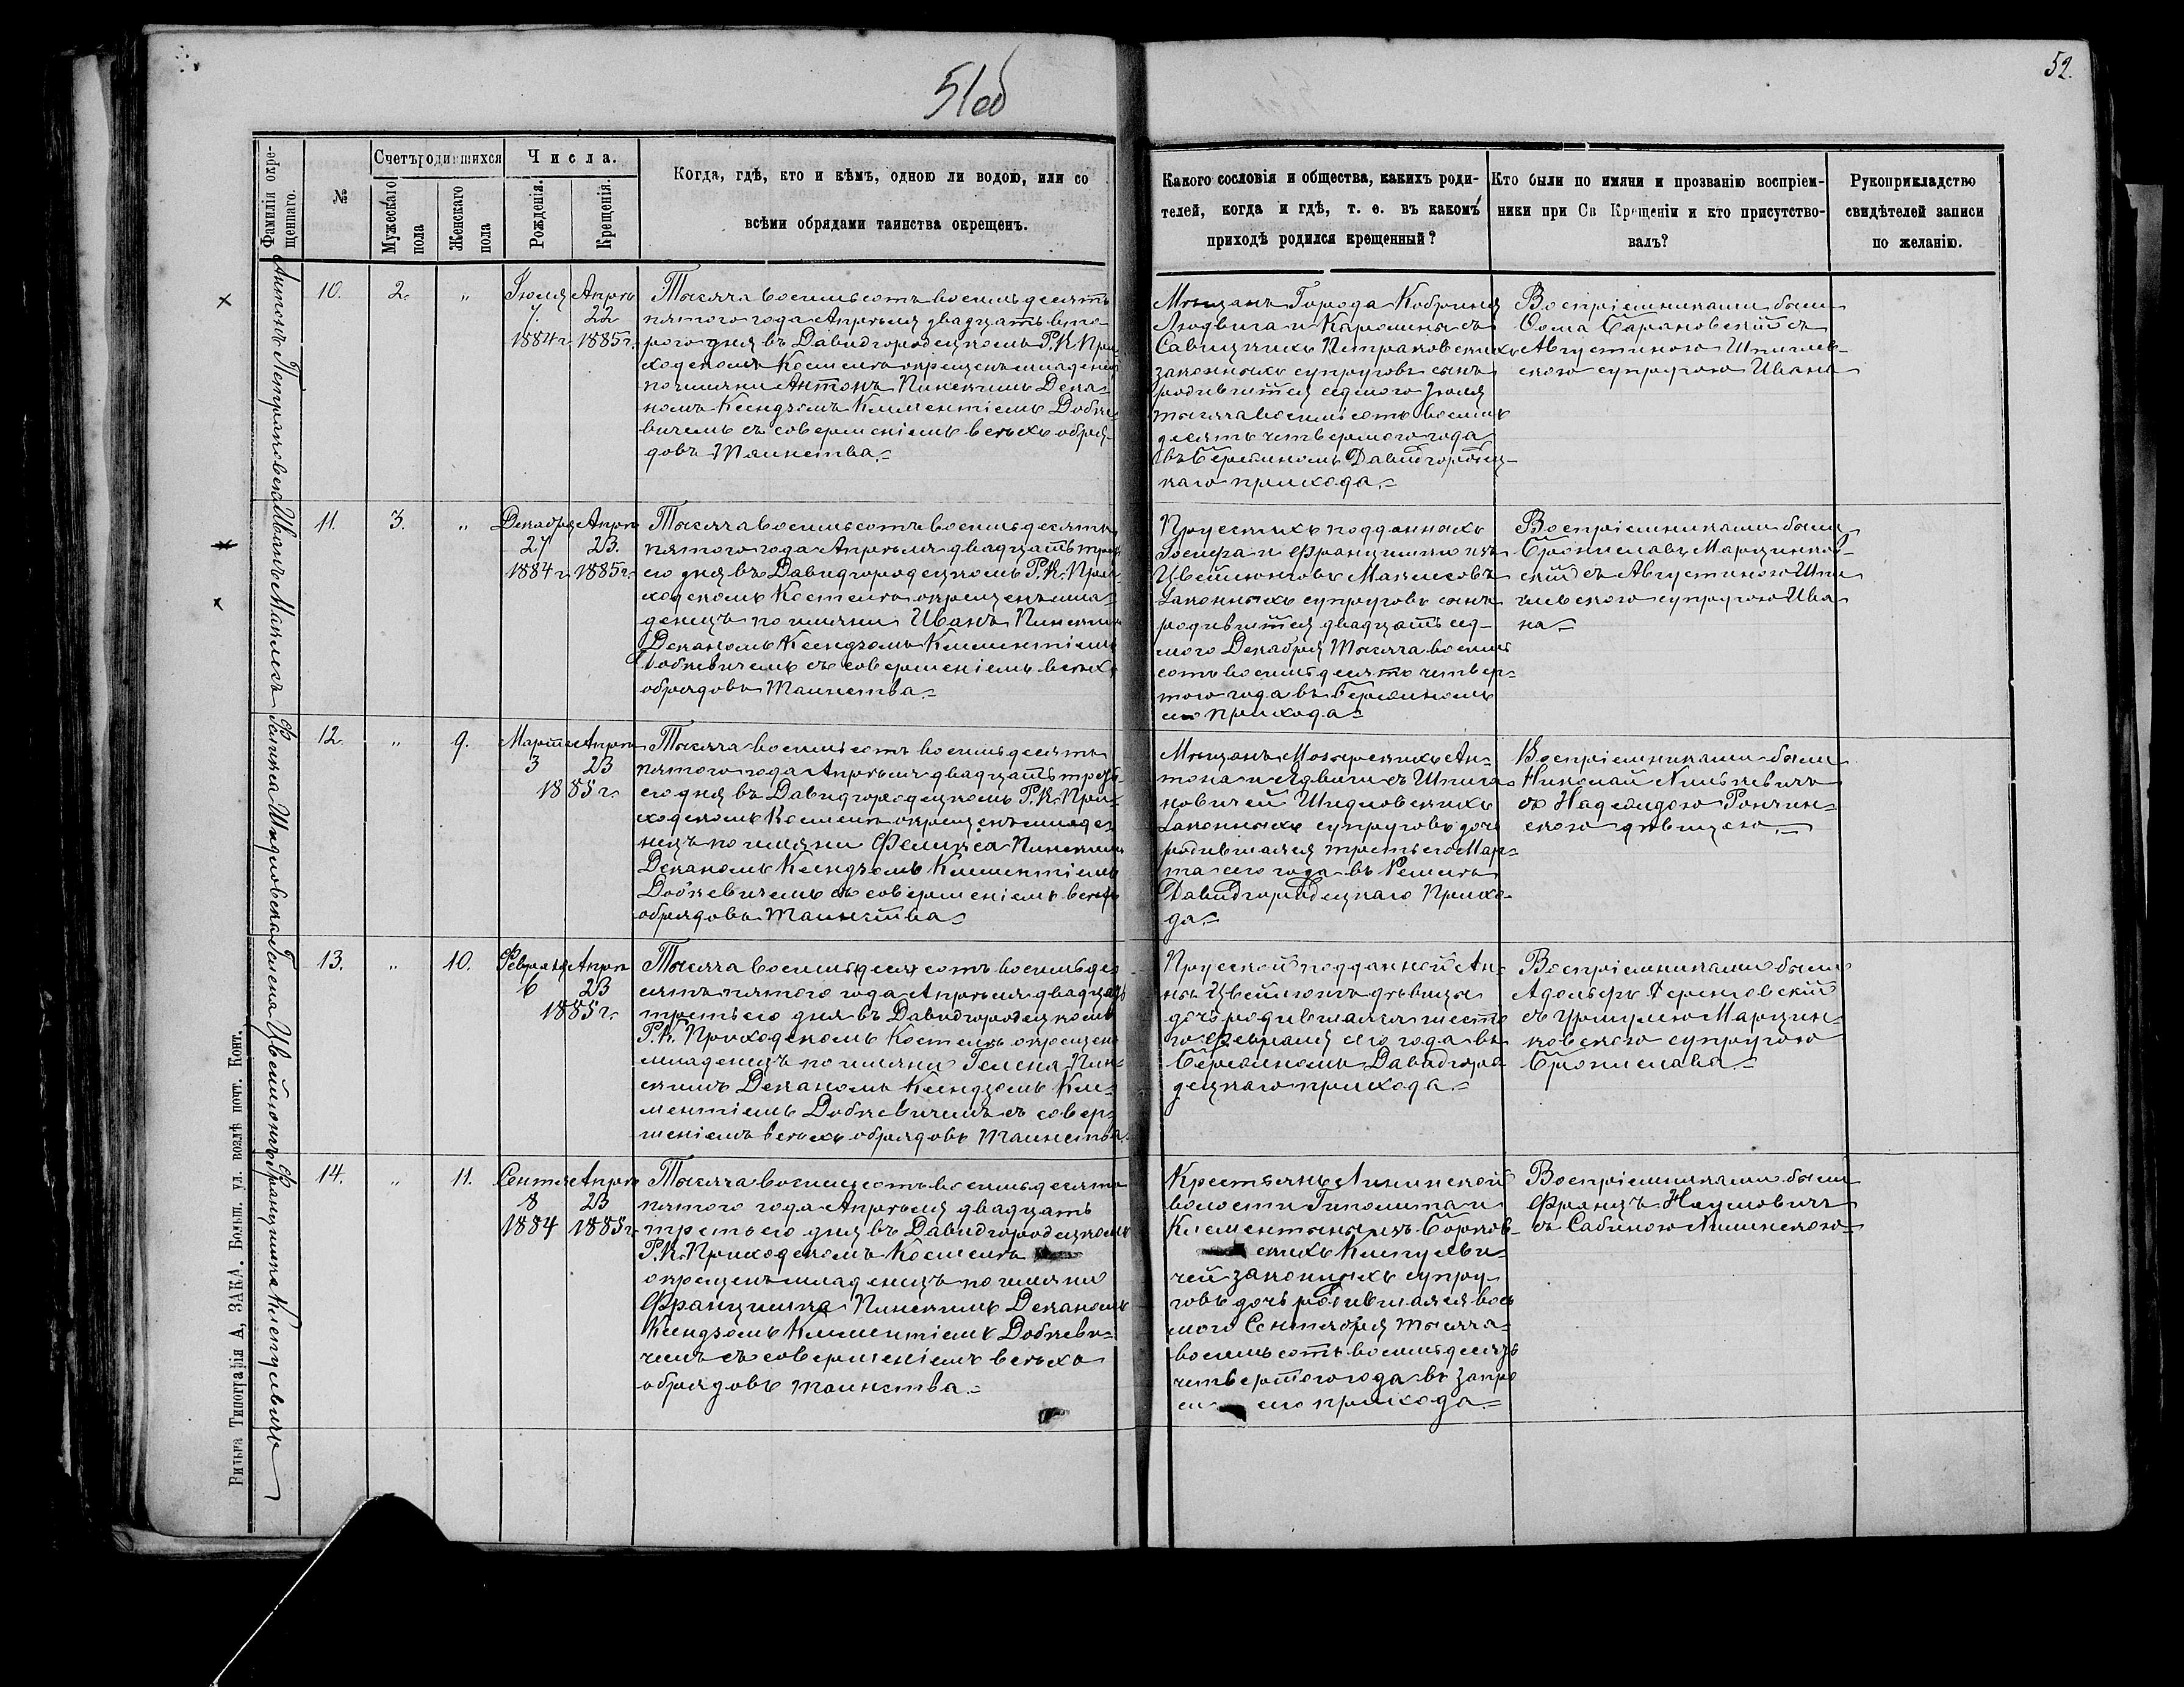 51об
52.
Фамилія окрещеннаго.
№
Счетъ родившихся
Мужескаго пола
Женскаго пола
Числа.
Рожденія.
Крещенія.
Когда, гдѣ, кто и кѣмъ, одною ли водою, или со
всѣми обрядами таинства окрещенъ.
Какого сословія и общества, какихъ роди-
телей, когда и гдѣ, т. е. въ какомъ
приходѣ родился крещенный?
Кто были по имяни и прозванію воспріем-
ники при Св Крещеніи и кто присутство-
валъ?
Рукоприкладство
свидѣтелей записи
по желанію.
Антонъ Петраковскій
10.
2.
"
Іюля Апрѣл
7. 22
1884 г. 1885 г.
Тысяча восемьсотъ восемьдесятъ
пятого года Апрѣля двадцать вто-
рого дня въ Давидгородецкомъ Р. К. При
ходскомъ Костелѣ окрещенъ младенецъ
по имяни Антонъ Пинскимъ Дека-
номъ Ксендзомъ Климентіемъ Добке
вичемъ съ совершеніемъ всѣхъ обря-
довъ Таинства.=
Мѣщанъ Города Кобрина
Людвига и Каролины съ
Савицкихъ Петраковскихъ
законныхъ супруговъ сынъ
родившійся седмого Іюля
тысяча восемьсотъ восемь
десятъ четвертого года
въ Бережномъ Давидгородец-
каго прихода.=
Воспріемниками были
Ѳома Барановскій съ
Августиною Шпилев-
скою супругою Ивана
Иванъ Маклесъ
11.
3.
"
Декабря Апрѣл
27 23.
1884 г. 1885 г.
Тысяча восемьсотъ восемьдесятъ
пятого года Апрѣля двадцать треть
его дня въ Давидгородецкомъ Р. К. При-
ходскомъ Костелѣ окрещенъ мла-
денецъ по имяни Иванъ Пинскимъ
Деканомъ Ксендзомъ Климентіемъ
Добкевичемъ съ совершеніемъ всѣхъ
обрядовъ Таинства.=
Прусскихъ подданныхъ
Іосифа и Францишки изъ
Цвейлюнговъ Маклесовъ
Законныхъ супруговъ сынъ
родившійся двадцать сед-
мого Декабря Тысяча восемь
сотъ восемьдесятъ четвер-
того года въ Бережномъ
сего прихода=
Воспріемниками были
Брониславъ Марцинков-
скій съ Августиною Шпи
левскою супругою Ива
на=
12.
"
9.
Марта Апрѣл
3 23
1885 г.
Тысяча восемьсотъ восемьдесятъ
пятого года Апрѣля двадцать треть-
его дня въ Давидгородецкомъ Р. К. При-
ходскомъ Костелѣ окрещенъ младе-
нецъ по имяни Феликса Пинскимъ
Деканомъ Ксендзомъ Климентіемъ
Добкевичемъ съ совершеніемъ всѣхъ
обрядовъ Таинства=
Мѣщанъ Мозырскихъ Ан-
тона и Ядвиги съ
Шидловскихъ
Законныхъ супруговъ дочь
родившаяся третьего Мар-
та сего года въ
Давидгородецкаго Прихо-
да.=
Воспріемниками были
Николай
съ Надеждою
скою дѣвицею.=
Гелена Цвейлюнгъ
13.
"
10.
Февраля Апрѣл
6 23
1885 г.
Тысяча восемьдесятсотъ восемьде-
сятъ пятого года Апрѣля двадцать
третьего дня въ Давидгородецкомъ
Р. К. Приходскомъ Костелѣ окрещенъ
младенецъ по имяни Гелена Пин-
скимъ Деканомъ Ксендзомъ Кли-
ментіемъ Добкевичемъ съ совер-
шеніемъ всѣхъ обрядовъ Таинства.
Прусской подданной Ан-
ны Цвейлюнгъ дѣвицы
дочь родившаяся шесто
го Февраля сего года въ
Бережномъ Давидгоро-
децкаго прихода.=
Воспріемниками были
Адольфъ
съ Уршулею Марцин-
ковскою супругою
Бронислава.=
Францишка
14.
"
11.
Сентяб Апрѣл
8 23
1884 1885 г.
Тысяча восемьсотъ восемьдесятъ
пятого года Апрѣля двадцать
третьего дня въ Давидгородецкомъ
Р. К. Приходскомъ Костелѣ
окрещенъ младенецъ по имяни
Францишка Пинскимъ Деканомъ
Ксендзомъ Климентіемъ Добкеви-
чемъ съ совершеніемъ всѣхъ
обрядовъ таинства.=
Крестьянъ
волости Гиполита и
Клементины изъ Борков-
скихъ
чей законныхъ супру-
говъ дочь родившаяся вось
мого Сентября тысяча
восемьсотъ восемьдесятъ
четвертого года въ
сего прихода.=
Воспріемниками были
Францъ Наумовичъ
съ Сабиною
Вильна Типографія А, ЗАКА. Больш. ул. возлѣ почт. Конт.